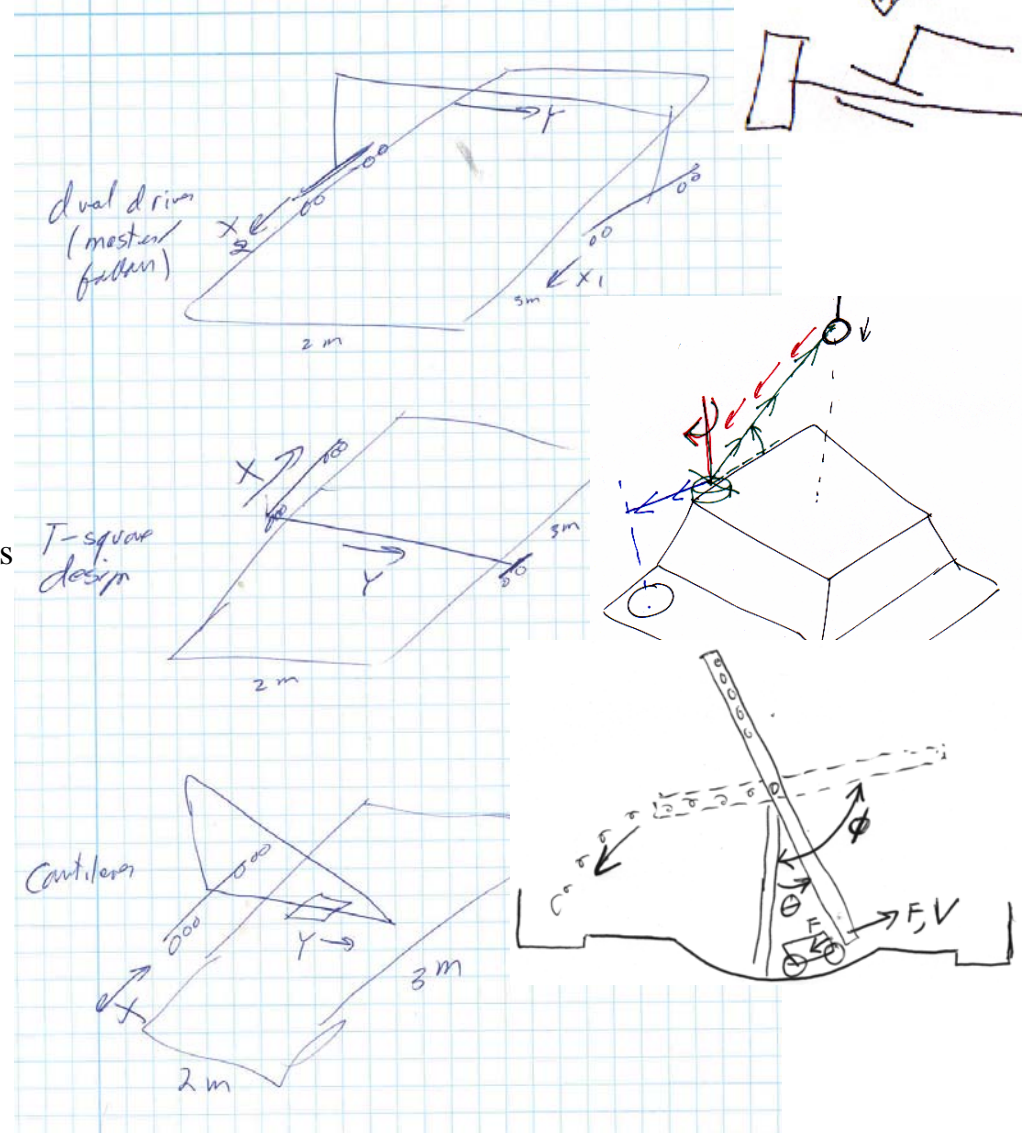 dual driver
(master/
follow)
Y
X
2
X1
3m
2 m
T-square
design
X
Y
3m
2 m
s
Cantilever
Y
X
3 m
2 m
V
ϕ
θ
F
F, V